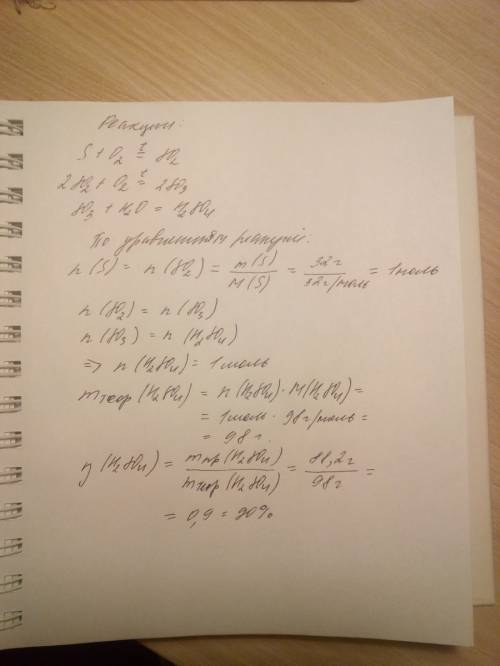 Реакции:
S + O₂ =ᵗ SO₂
2SO₂ + O₂ =ᵗ 2SO₃
SO₃ + H₂O = H₂SO₄
По уравнениям реакций:
n(S) = n(SO₂) = m(S)/M(S) = 32г/32г/моль = 1моль
n(SO₂) = n(SO₃)
n(SO₃) = n(H₂SO₄)
=> n(H₂SO₄) = 1моль
mтеор(H₂SO₄) = n(H₂SO₄)·M(H₂SO₄) =
= 1моль · 98г/моль =
= 98г.
η(H₂SO₄) = mпр(H₂SO₄)/mтеор(H₂SO₄) = 88,2г/98г =
= 0,9 = 90%